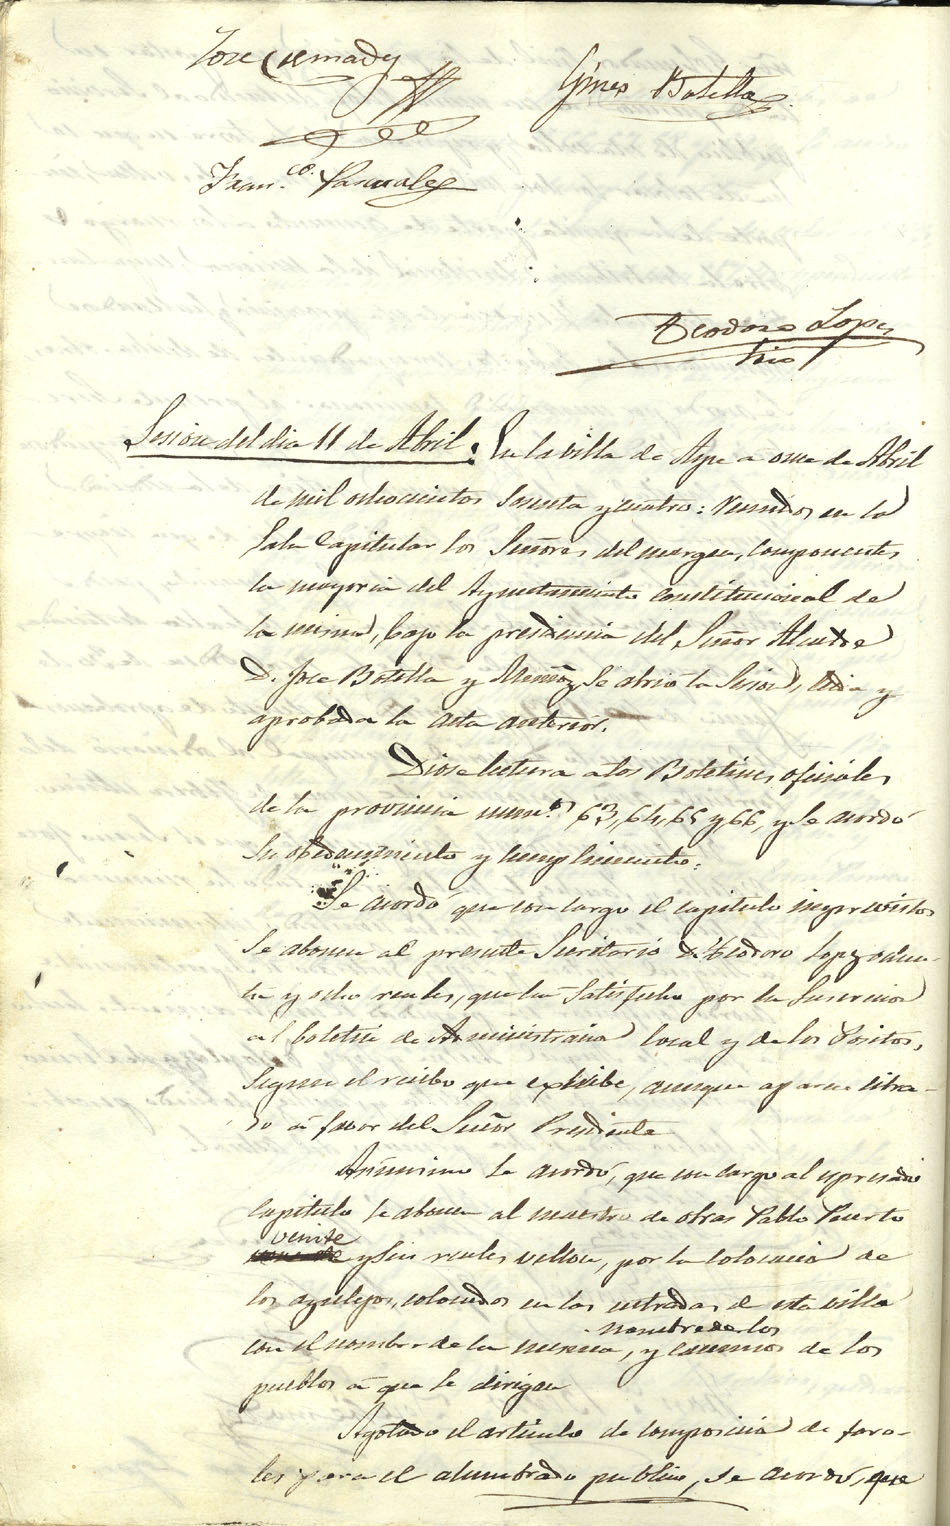 Jose Cremades
Gines Botella
Fran.co Pascual
Teodoro Lopez
Srio
Sesion del dia 11 de Abril. En la villa de Aspe a once de Abril
de mil ochocientos sesenta y cuatro: reunidos en la
Sala Capitular los Señores del margen, componentes
la mayoria del Ayuntamiento constitucional de
la misma, bajo la presidencia del Señor Alcalde
D. Jose Botella y se abrió la sesion, leida y
aprobada la acta anterior.
Diose lectura a los Boletines oficiales
de la provincia num.os 63, 64, 65 y 66, y se acordó
su obedecimiento y cumplimiento.
Se acordó que con cargo el capitulo imprevistos
se abonen al presente Secretario D. Teodoro Lopez ochen-
ta y ocho reales, que ha satisfecho por la suscricion
al boletin de Administracion local y de los Positos,
segun el recibo que exhibe, aunque aparece libra-
do á favor del Señor Presidente
Asimismo se acordó, que con cargo al espresado
capitulo se abonen al maestro de obras Pablo Puerto
veinte
y seis reales vellon, por la colocacion de
los azulejos, colocados en las entradas de esta villa
nombre de los
con el nombre de la misma, y caminos de los
pueblos á que se dirigen
Agotado el articulo de composicion de faro-
les para el alumbrado publico, se acordó, que